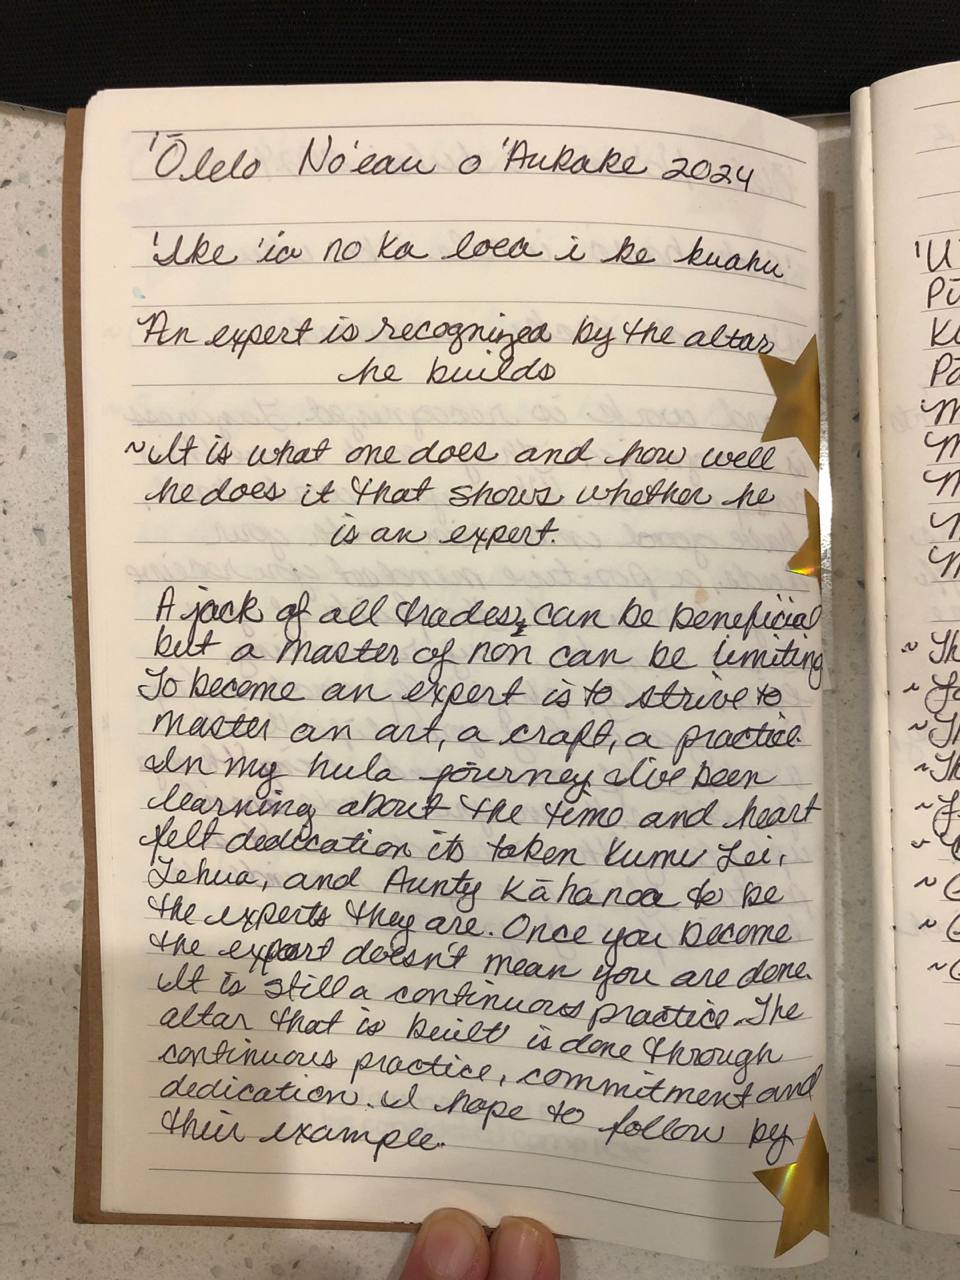 'Ōlelo No'eau o 'Aukake 2024
'Ike 'ia no ka loea i ke kuahu
An expert is recognized by the altar
he builds
~It is what one does and how well
he does it that shows whether he
is an expert.
A jack of all trades, can be beneficial
but a master of non can be limiting
To become an expert is to strive to
master an art, a craft, a practice
In my hula journey I've been
learning about the time and heart
felt dedication its taken Kumu Lei,
Lehua, and Aunty Kāhanoa to be
the experts they are. Once you become
the expert doesn't mean you are done.
It is still a continuous practice. The
altar that is built is done through
continuous practice, commitment and
dedication. I hope to follow by
their example.
'U
Pū
Kū
Pā
M
M
M
M
M
~Th
~Th
~Th